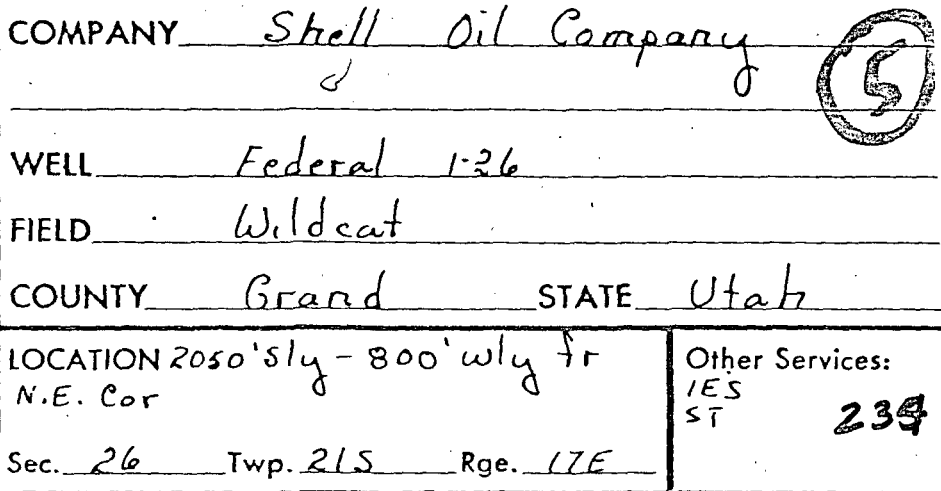 COMPANY Shell Oil Company
5
WELL Federal 1-26
FIELD Wildcat
COUNTY Grand STATE Utah
LOCATION 2050' Sly - 800' wly fr
N.E. Cor
Sec. 26 Twp. 21S Rge. 17E
Other Services:
IES
ST